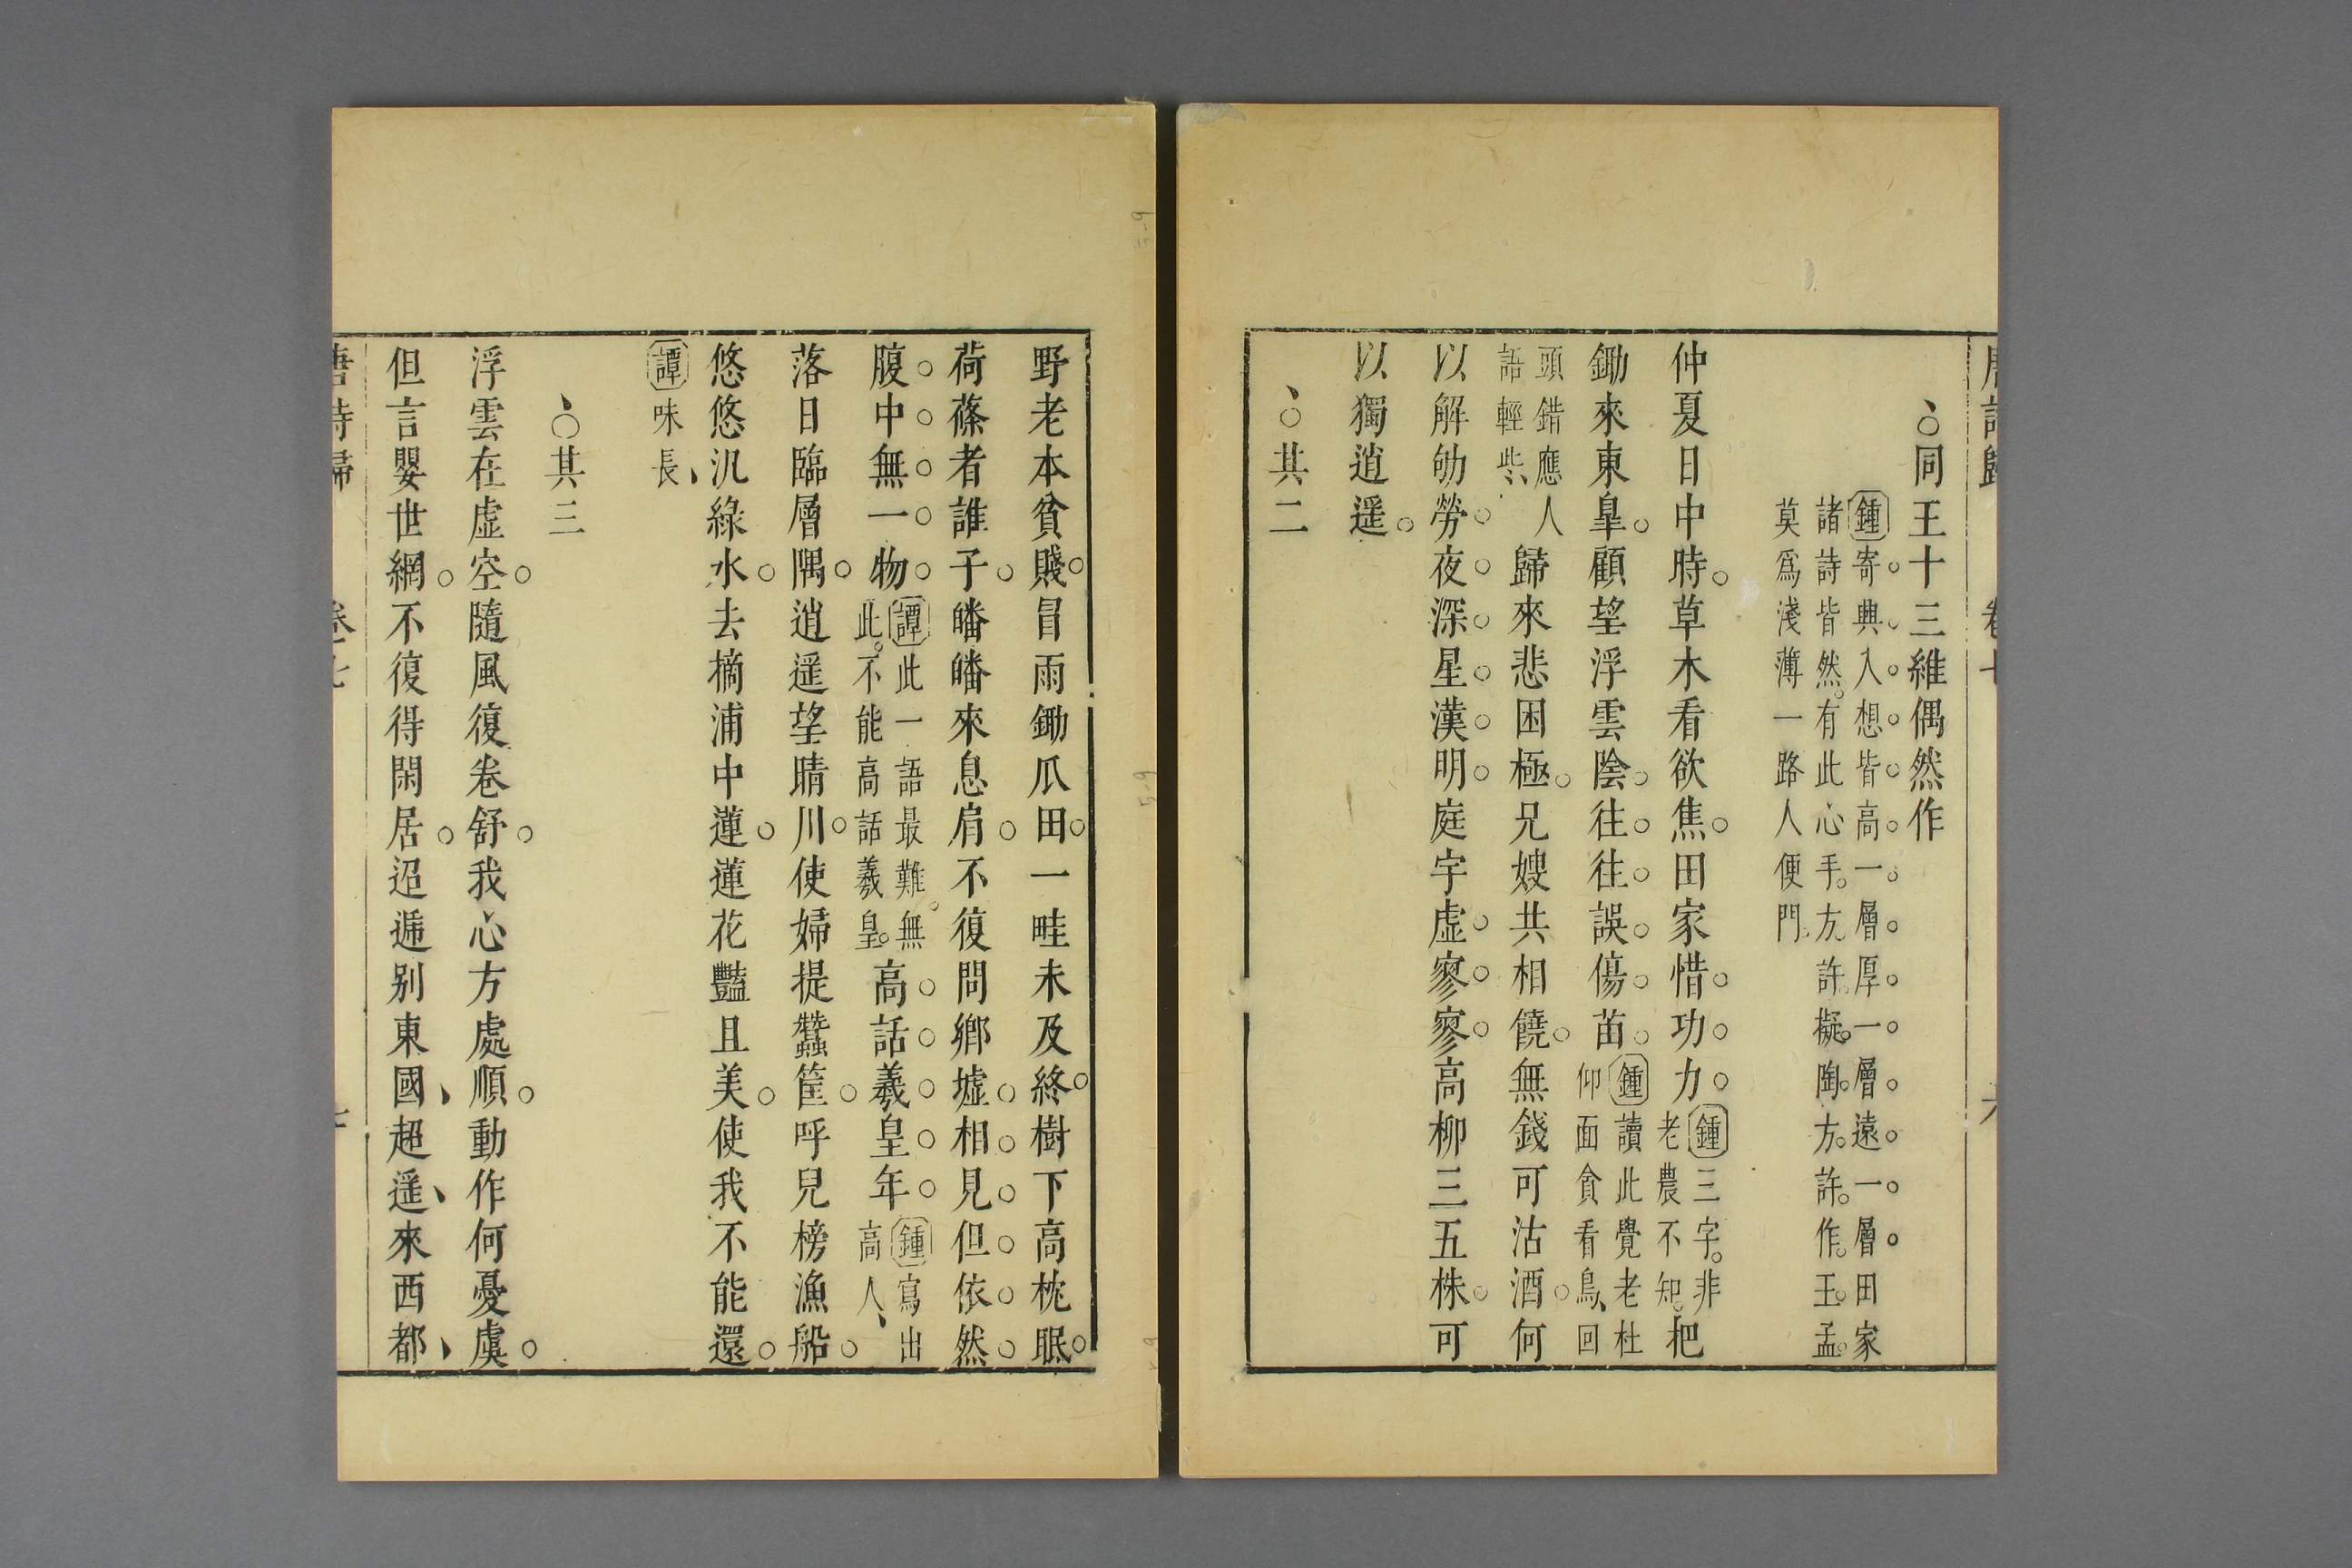 唐詩歸 卷七
同王十三維偶然作
鍾寄興入想皆高一層厚一層遠一層田家
諸詩皆然有此心手方許擬陶方許作王孟
莫爲淺薄一路人便門
仲夏日中時草木看欲焦田家惜功力鍾三字非
老農不知把
鋤來東臯顧望浮雲陰往往誤傷苗鍾讀此覺老杜
仰面貪看鳥回
頭錯應人
語輕些歸來悲困極兄嫂共相饒無錢可沽酒何
以解劬勞夜深星漢明庭宇虛寥寥高柳三五株可
以獨逍遥
其二
野老本貧賤冒雨鋤瓜田一畦未及終樹下高枕眠
荷蓧者誰子皤皤來息肩不復問鄉墟相見但依然
腹中無一物譚此一語最難無
此不能高話羲皇高話羲皇年鍾寫出
高人
落日臨層隅逍遥望晴川使婦提蠶筐呼兒榜漁船
悠悠汎綠水去摘浦中蓮蓮花豔且美使我不能還
譚味長
其三
浮雲在虛空隨風復卷舒我心方處順動作何憂虞
但言嬰世網不復得閑居迢遞别東國超遥來西都
唐詩歸 卷七